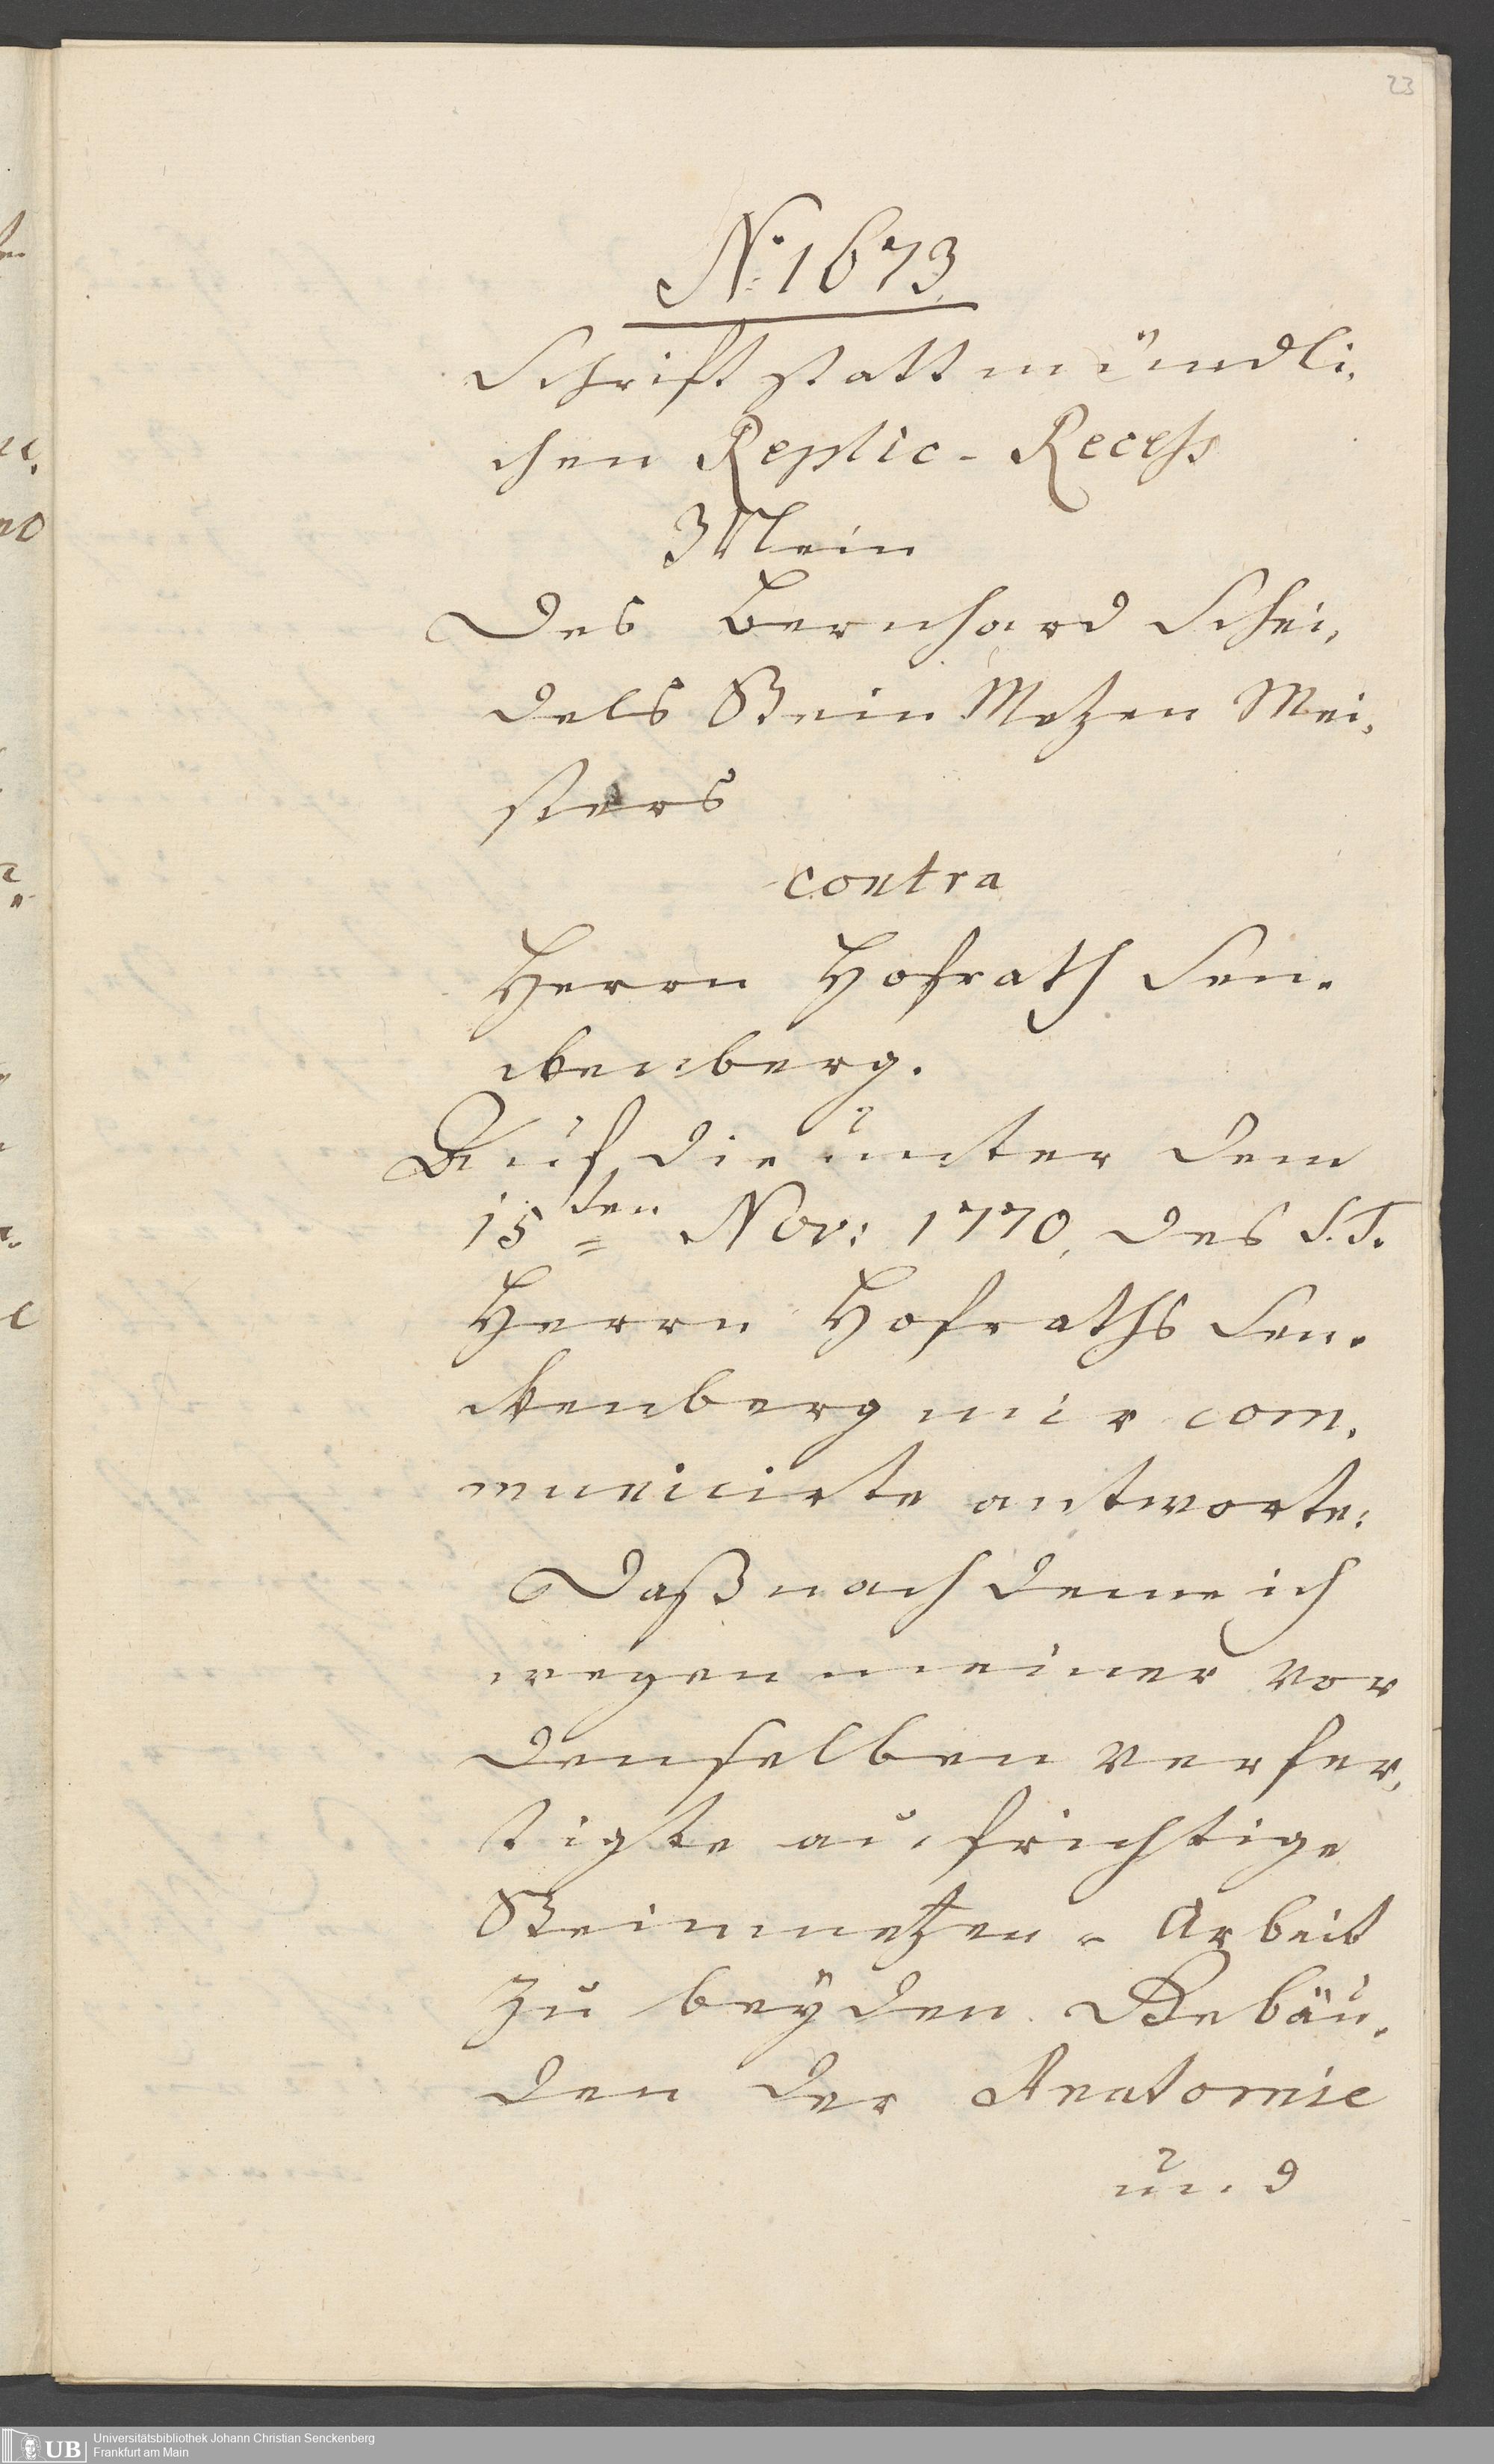 23
No: 1673.
Schrift statt mündli,
chen Replic-Recess
Mein
Des Bernhard Schei,
dels Stein Metzen Mei,
sters
contra
Herrn Hofrath Sen-
ckenberg.
Auf die unter dem
15ten Nov: 1770, des S. T.
Herrn Hofraths Sen-
ckenberg mir com,
municirte antworte:
Daß nach deme ich
wegen meiner vor
denselben verfer,
tigte aufrichtige
Steinmetzen-Arbeit
zu beyden Gebäu-
den der Anatomie
und
UB
Universitätsbibliothek Johann Christian Senckenberg
Frankfurt am Main